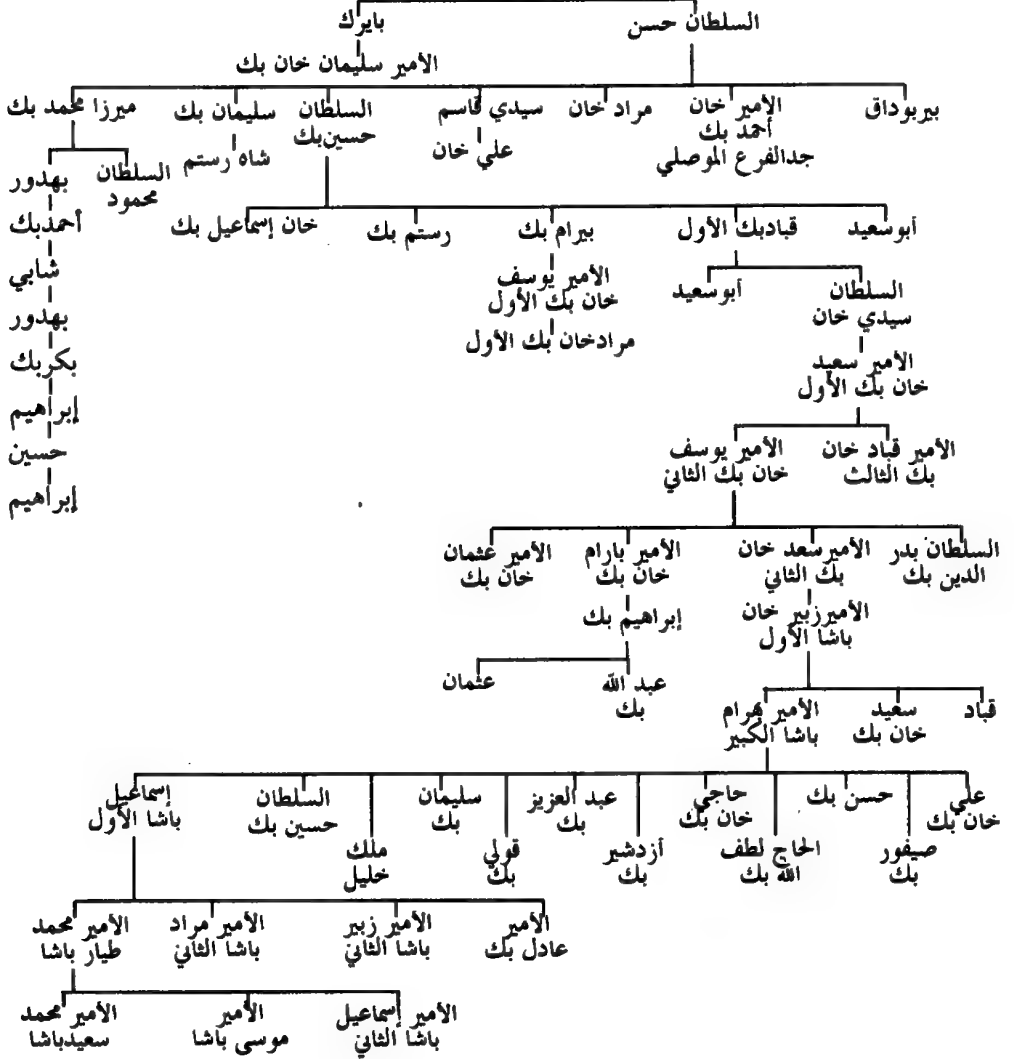 السلطان حسن
بايرك
الأمير سليمان خان بك
بيربوداق
الأمير خان
أحمد بك
جدالفرع الموصلي
مراد خان
سيدي قاسم
علي خان
السلطان
حسين بك
سليمان بك
شاه رستم
ميرزا محمد بك
السلطان
محمود
بهدور
أحمدبك
شابي
بهدور
بكربك
إبراهيم
حسين
إبراهيم
أبوسعيد
قبادبك الأول
بيرام بك
رستم بك
خان إسماعيل بك
الأمير يوسف
خان بك الأول
مرادخان بك الأول
السلطان
سيدي خان
أبوسعيد
الأمير سعيد
خان بك الأول
الأمير قباد خان
بك الثالث
الأمير يوسف
خان بك الثاني
السلطان بدر
الدين بك
الأميرسعد خان
بك الثاني
الأمير بارام
خان بك
الأمير عثمان
خان بك
الأميرزبير خان
باشا الأول
إبراهيم بك
عبد الله
بك
عثمان
قباد
سعيد
خان بك
الأمير بهرام
باشا الكبير
علي
خان بك
صيفور
بك
حسن بك
الحاج لطف
الله بك
حاجي
خان بك
أزدشير
بك
عبد العزيز
بك
قولي
بك
سليمان
بك
ملك
خليل
السلطان
حسين بك
إسماعيل
باشا الأول
الأمير
عادل بك
الأمير زبير
باشا الثاني
الأمير مراد
باشا الثاني
الأمير محمد
طيار باشا
الأمير إسماعيل
باشا الثاني
الأمير
موسى باشا
الأمير محمد
سعيدباشا